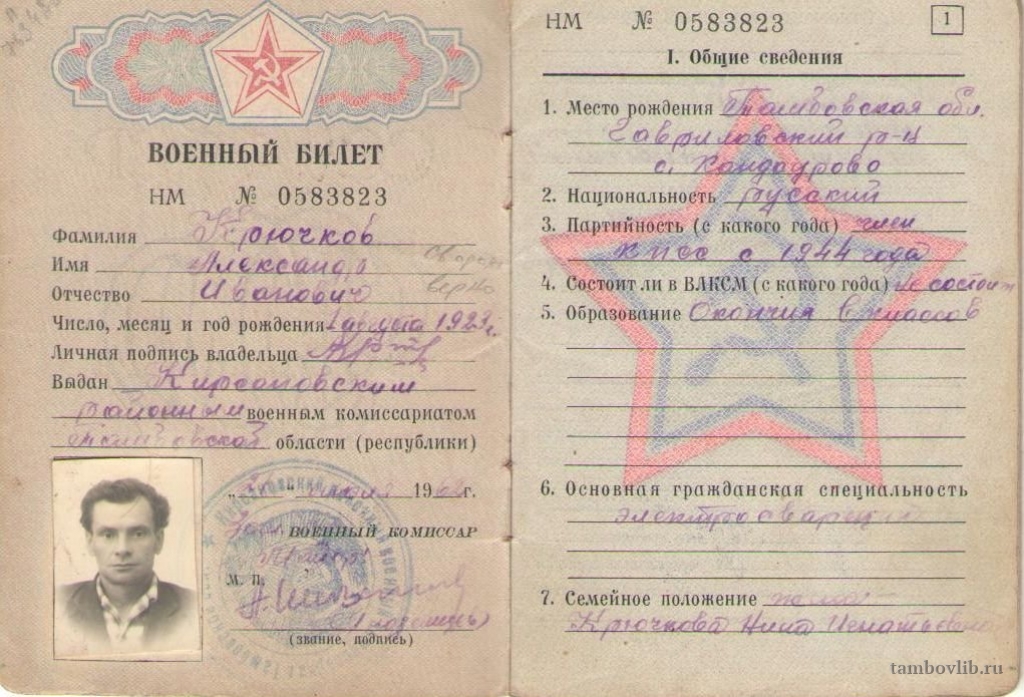 ВОЕННЫЙ БИЛЕТ
НМ № 0583823
Фамилия Крючков
Имя Александр
Отчество Иванович
Число, месяц и год рождения 1 августа 1923 г.
Личная подпись владельца
Выдан Кирсановским
районным военным комиссариатом
Тамбовской области (республики)
196 г.
ВОЕННЫЙ КОМИССАР
М. П.
(звание, подпись)
НМ № 0583823
1
I. Общие сведения
1. Место рождения Тамбовская обл.
Гавриловский р-ц
с. Хандаурово
2. Национальность русский
3. Партийность (с какого года) член
КПСС с 1944 года
4. Состоит ли в ВЛКСМ (с какого года) не состоит
5. Образование Окончил 6 классов
6. Основная гражданская специальность
электросварщик
7. Семейное положение жена
Крючкова Нина Игнатьевна
tambovlib.ru